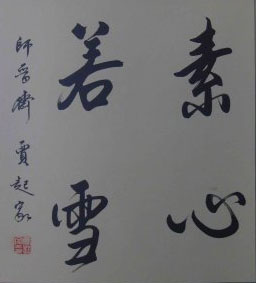 素心
若雪
師晉齋 賈起家